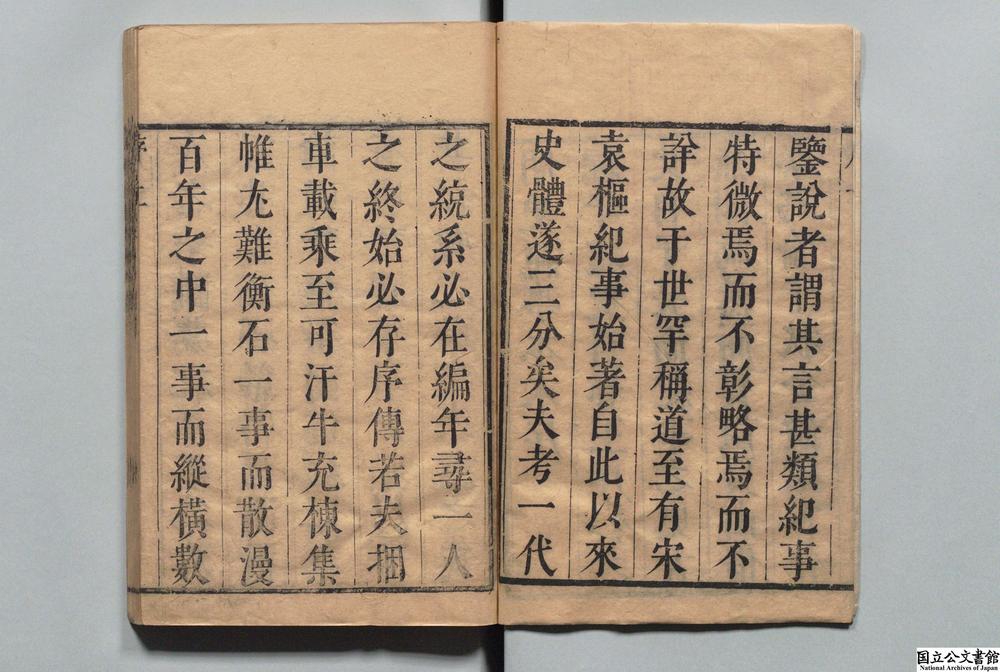 鑒說者謂其言甚類紀事
特微焉而不彰略焉而不
詮故于世罕稱道至有宋
袁樞紀事始著自此以來
史體遂三分矣夫考一代
之統系必在編年尋一人
之終始必存序傳若夫捆
車載乘至可汗牛充棟集
帷尢難衡石一事而散漫
百年之中一事而縱橫數
国立公文書館
National Archives of Japan